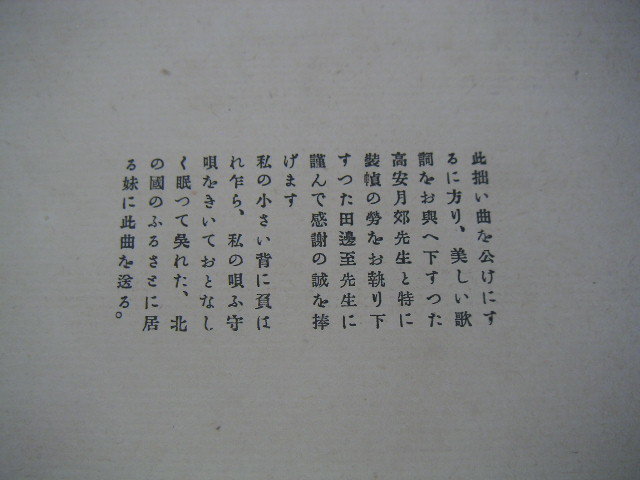 此拙い曲を公けにす
るに方り、美しい歌
詞をお與へ下すつた
高安月郊先生と特に
裝幀の勞をお執り下
すつた田邊至先生に
謹んで感謝の誠を捧
げます
私の小さい背に負は
れ乍ら、私の唄ふ守
唄をきいておとなし
く眠つて吳れた、北
の國のふるさとに居
る妹に此曲を送る。